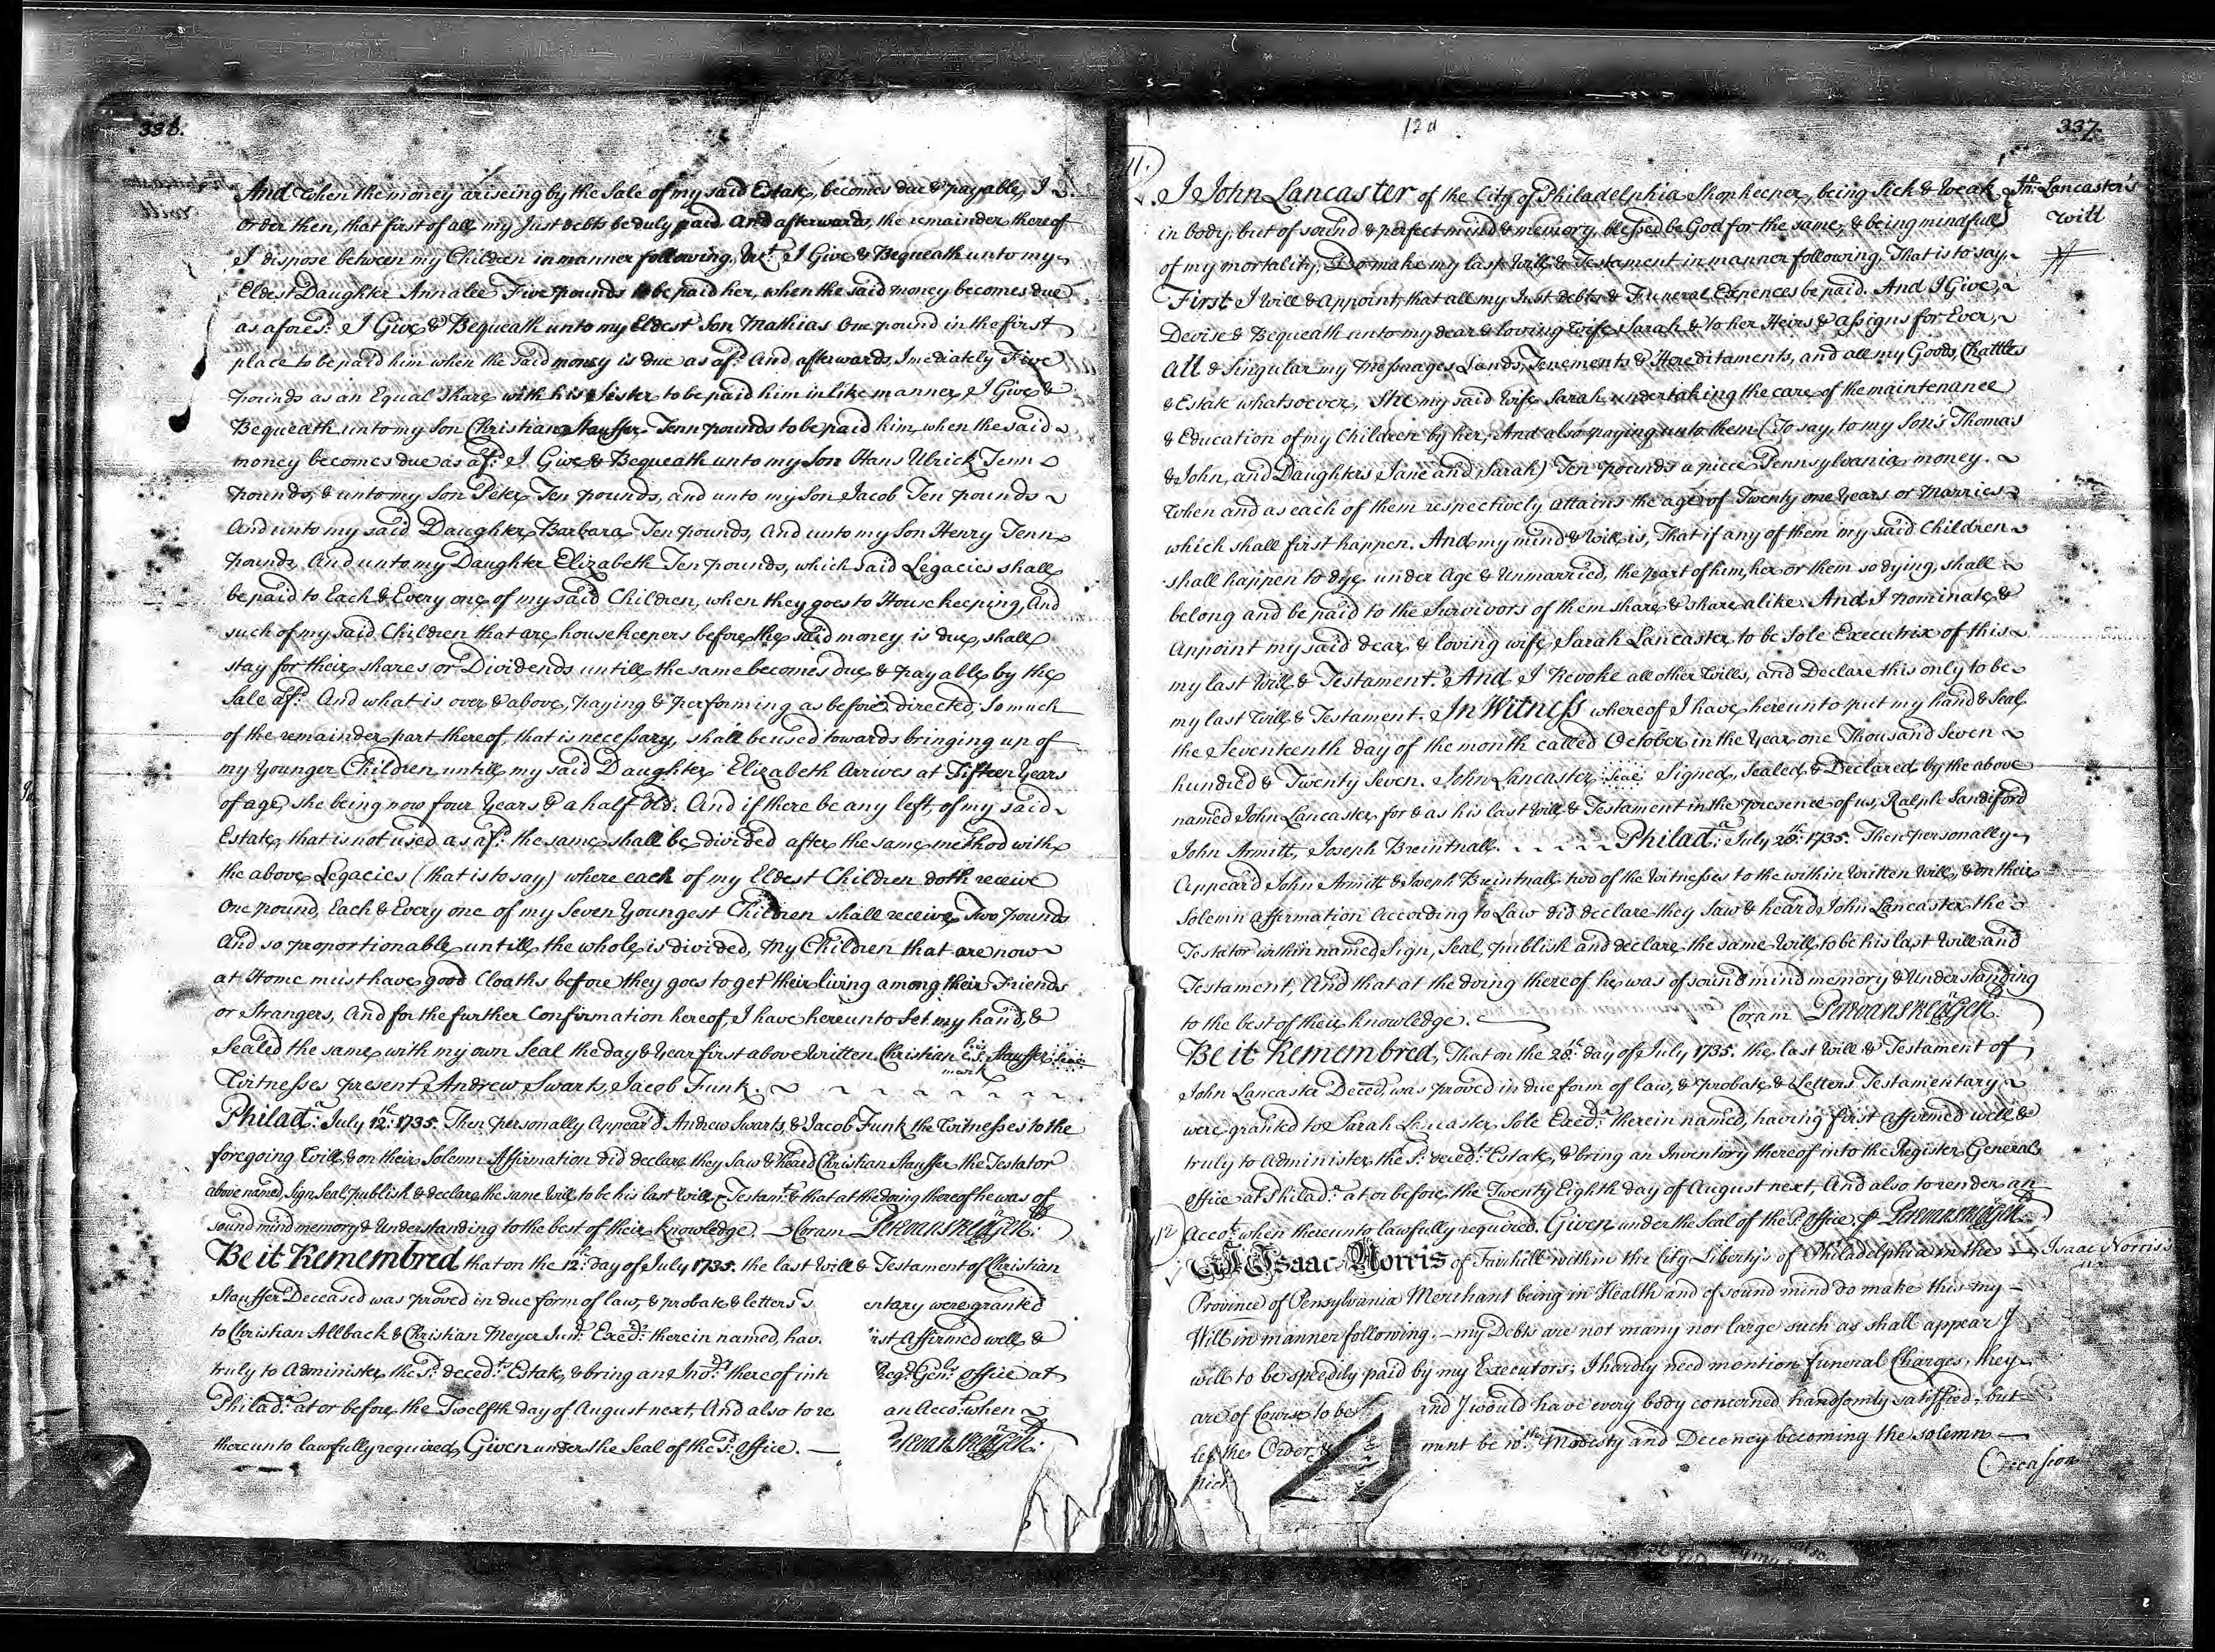 336.
And when the money ariseing by the Sale of my said Estate, becomes due & payable, I
Order then, that first of all my Just debts be duly paid And afterwards, the remainder thereof
I dispose between my Children in manner following. Vizt. I Give & Bequeath unto my
Eldest Daughter Annalee Five pounds to be paid her, when the said money becomes due
as aforesd: I Give & Bequeath unto my Eldest Son Mathias One pound in the first
place to be paid him when the said money is due as afsd: And afterwards, Imediately Five
pounds as an Equal share with his Sister to be paid him in like manner, I Give &
Bequeath unto my Son Christian Stauffer Tenn pounds to be paid him, when the said
money becomes due as afsd: I Give & Bequeath unto my Son Hans Ulrick Tenn
pounds, & unto my Son Peter Ten pounds, and unto my Son Jacob Ten pounds
And unto my said Daughter Barbara Ten pounds, And unto my Son Henry Tenn
pounds, And unto my Daughter Elizabeth Ten pounds, which said Legacies shall
be paid to Each & Every one of my said Children, when they goes to House keeping, And
such of my said Children that are housekeepers before the said money is due, shall
stay for their shares or Dividends untill the same becomes due & payable by the
Sale afsd: And what is over & above, paying & performing as before directed, So much
of the remainder part thereof, that is necessary, shall be used towards bringing up of
my Younger Children untill my said Daughter Elizabeth Arrives at Fifteen Years
of age, she being now four Years & a half old. And if there be any left, of my said
Estate, that is not used as afsd: the same shall be divided after the same method with
the above Legacies (that is to say) where each of my Eldest Children doth receive
One pound, Each & Every one of my Seven Youngest Children shall receive Two pounds
And so proportionable untill the whole is divided, My Children that are now
at Home must have good Cloaths before they goes to get their living among their Friends
or Strangers, And for the further Confirmation hereof, I have hereunto Set my hand, &
Sealed the same with my own Seal the day & Year first above Written. Christian his C.S. mark Stauffer seal
Witnesses present Andrew Swarts, Jacob Funk.
Philada: July 12th: 1735. Then personally Appear'd Andrew Swarts, & Jacob Funk the Witnesses to the
foregoing Will, & on their Solemn Affirmation did declare they Saw & heard Christian Stauffer the Testator
above named Sign Seal, publish & declare the same Will to be his last Will & Testamt: & that at the doing thereof he was of
sound mind memory & Understanding to the best of their knowledge. Coram
Be it Remembred that on the 12th: day of July 1735. the last Will & Testament of Christian
Stauffer Deceased was proved in due form of law, & probate & letters entary were granted
to Christian Allback & Christian Meyer Junr: Exedrs: therein named, hav. irst Affirmed well &
truly to Administer the sd: decedts: Estate, & bring an Invry: thereof into Regr: Genls: office at
Philada: at or before the Twelfth day of August next, And also to re an Accot: when
thereunto lawfully required, Given under the Seal of the sd: office.
120
337.
11.
Jno: Lancaster's
Will
I John Lancaster of the City of Philadelphia Shopkeeper, being Sick & Weak
in body, but of sound & perfect mind & memory, blessed be God for the same, & being mindfull
of my mortality, Do make my last Will & Testament in manner following, That is to say,
First I Will & Appoint, that all my Just debts & Funeral Expences be paid. And I Give,
Devise & Bequeath unto my dear & loving Wife Sarah & to her Heirs & Assigns for Ever,
All & Singular my Messuages Lands, Tenements & Hereditaments, and all my Goods, Chattles
& Estate whatsoever, She my said Wife Sarah undertaking the care of the maintenance
& Education of my Children by her, And also paying unto them (To say, to my Son's Thomas
& John, and Daughters Jane and Sarah) Ten pounds a piece Pennsylvania money.
When and as each of them respectively attains the age of Twenty one Years or Marries
which shall first happen. And my mind & Will is, That if any of them my said Children
shall happen to dye under Age & Unmarried, the part of him, her or them so dying, shall
belong and be paid to the Survivors of them share & share alike. And I nominate &
Appoint my said dear & loving wife Sarah Lancaster to be Sole Executrix of this
my last Will & Testament. And I Revoke all other Wills, and Declare this only to be
my last Will & Testament. In Witness whereof I have hereunto put my hand & Seal
the Seventeenth day of the month called October in the Year one Thousand Seven
hundred & Twenty Seven. John Lancaster seal Signed, Sealed & Declared by the above
named John Lancaster for & as his last Will & Testament in the presence of us, Ralph Sandiford
John Armitt, Joseph Breintnall. Philada: July 28th: 1735. Then personally
Appeard John Armitt & Joseph Breintnall two of the Witnesses to the within Written Will, & on their
Solemn Affirmation According to Law did declare they Saw & heard John Lancaster the
Testator within named Sign, Seal, publish and declare the same Will to be his last Will and
Testament, And that at the doing thereof he was of sound mind memory & Understanding
to the best of their knowledge. Coram
Be it Remembred, That on the 28th: day of July 1735. the last Will & Testament of
John Lancaster Deced, was proved in due form of law, & probate & Letters Testamentary
were granted to Sarah Lancaster Sole Exedx: therein named, having first Affirmed well &
truly to Administer the sd: decedts: Estate, & bring an Inventory thereof into the Register Generals
office at Philada: at or before the Twenty Eighth day of August next, And also to render an
Accot: when thereunto lawfully required. Given under the Seal of the sd: office,
12
Isaac Norris's
I Isaac Norris of Fairhill within the City Liberty's of Philadelphia in the
Province of Pensylvania Merchant being in Health and of sound mind do make this my
Will in manner following, my Debts are not many nor large such as shall appear I
will to be speedily paid by my Executors; I hardly need mention funeral Charges, they
are of Course to be and I would have every body concerned handsomly satisfied, but
let the Order ment be wth: Modesty and Decency becoming the solemn
Occasion